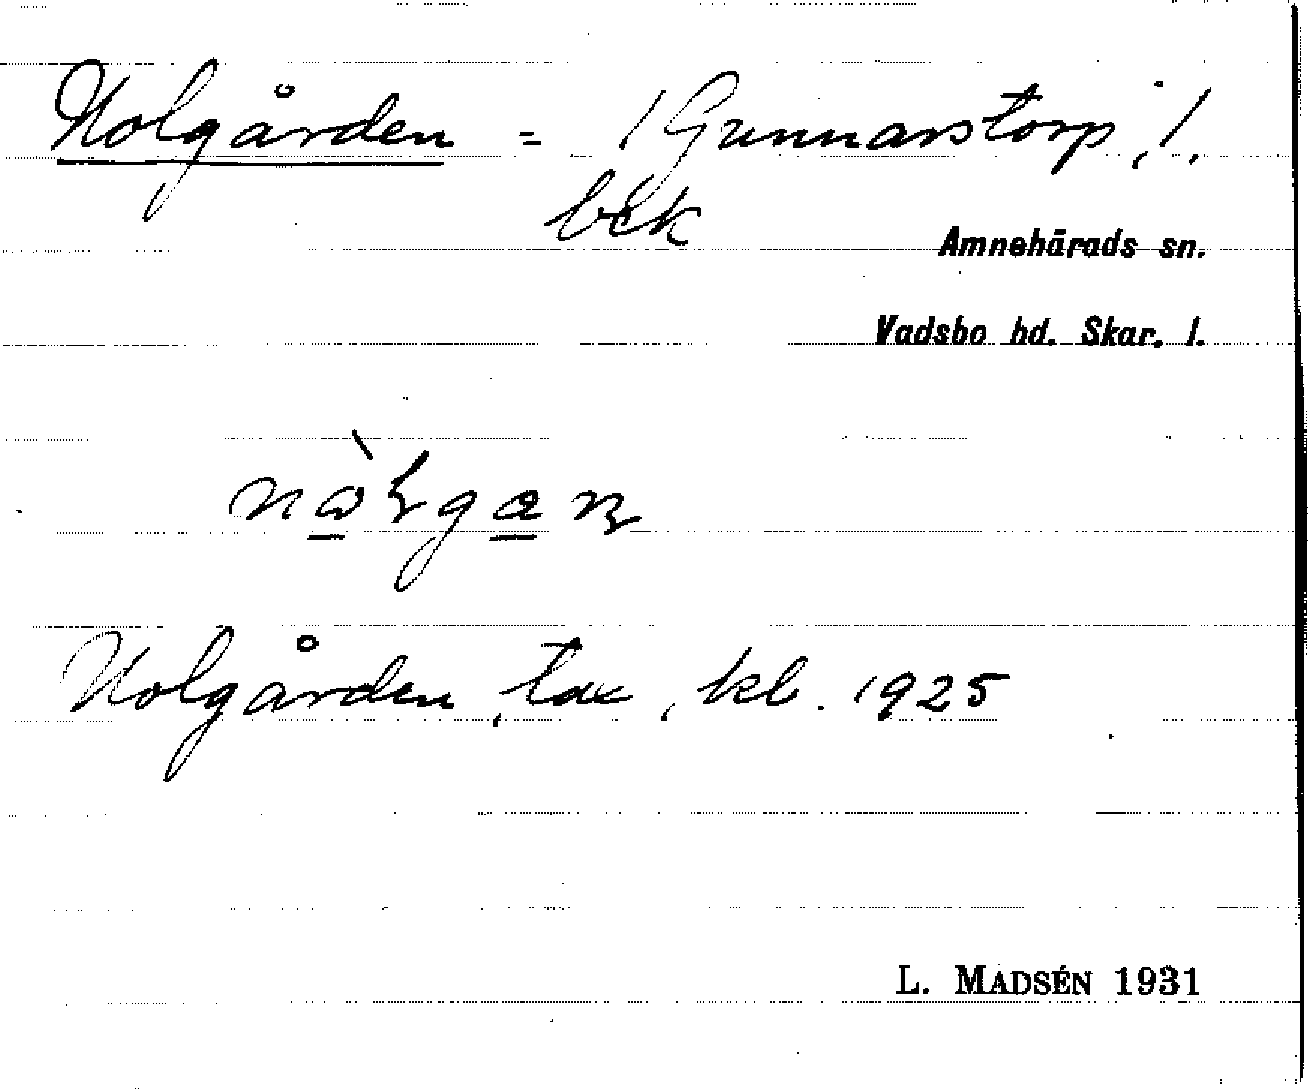 Nolgården = 1 Gunnarstorp, 1.
bek
Amnehärads sn.
Vadsbo hd. Skar. l.
Nolgården, tax, kl. 1925
L. MADSÉN 1931